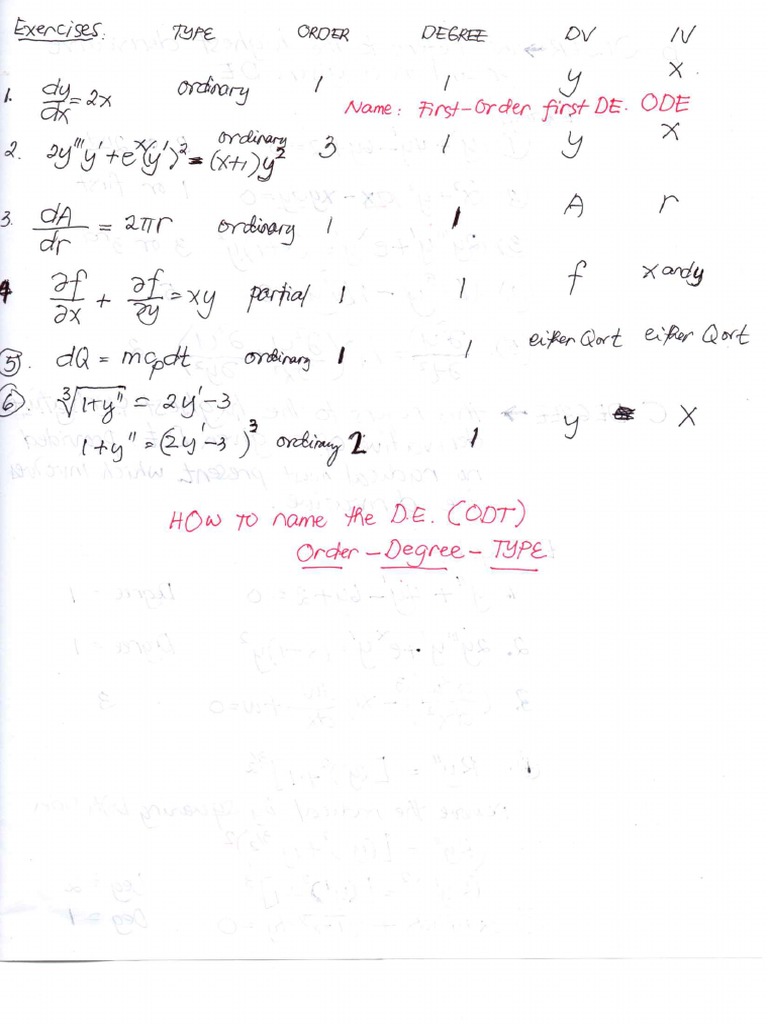 Exercises: TYPE ORDER DEGREE DV IV
1. dy/dx = 2x ordinary 1 1 y x
Name: First-Order first DE. ODE
2. 2y'''y' + eˣ(y')² = (x+1)y² ordinary 3 1 y x
3. dA/dr = 2πr ordinary 1 1 A r
4 ∂f/∂x + ∂f/∂y = xy partial 1 1 f x and y
5. dQ = mcₚdt ordinary 1 1 either Q or t either Q or t
6 ∛(1+y'') = 2y'-3
1+y'' = (2y'-3)³ ordinary 2 1 y x
HOW TO name the D.E. (ODT)
Order - Degree - TYPE